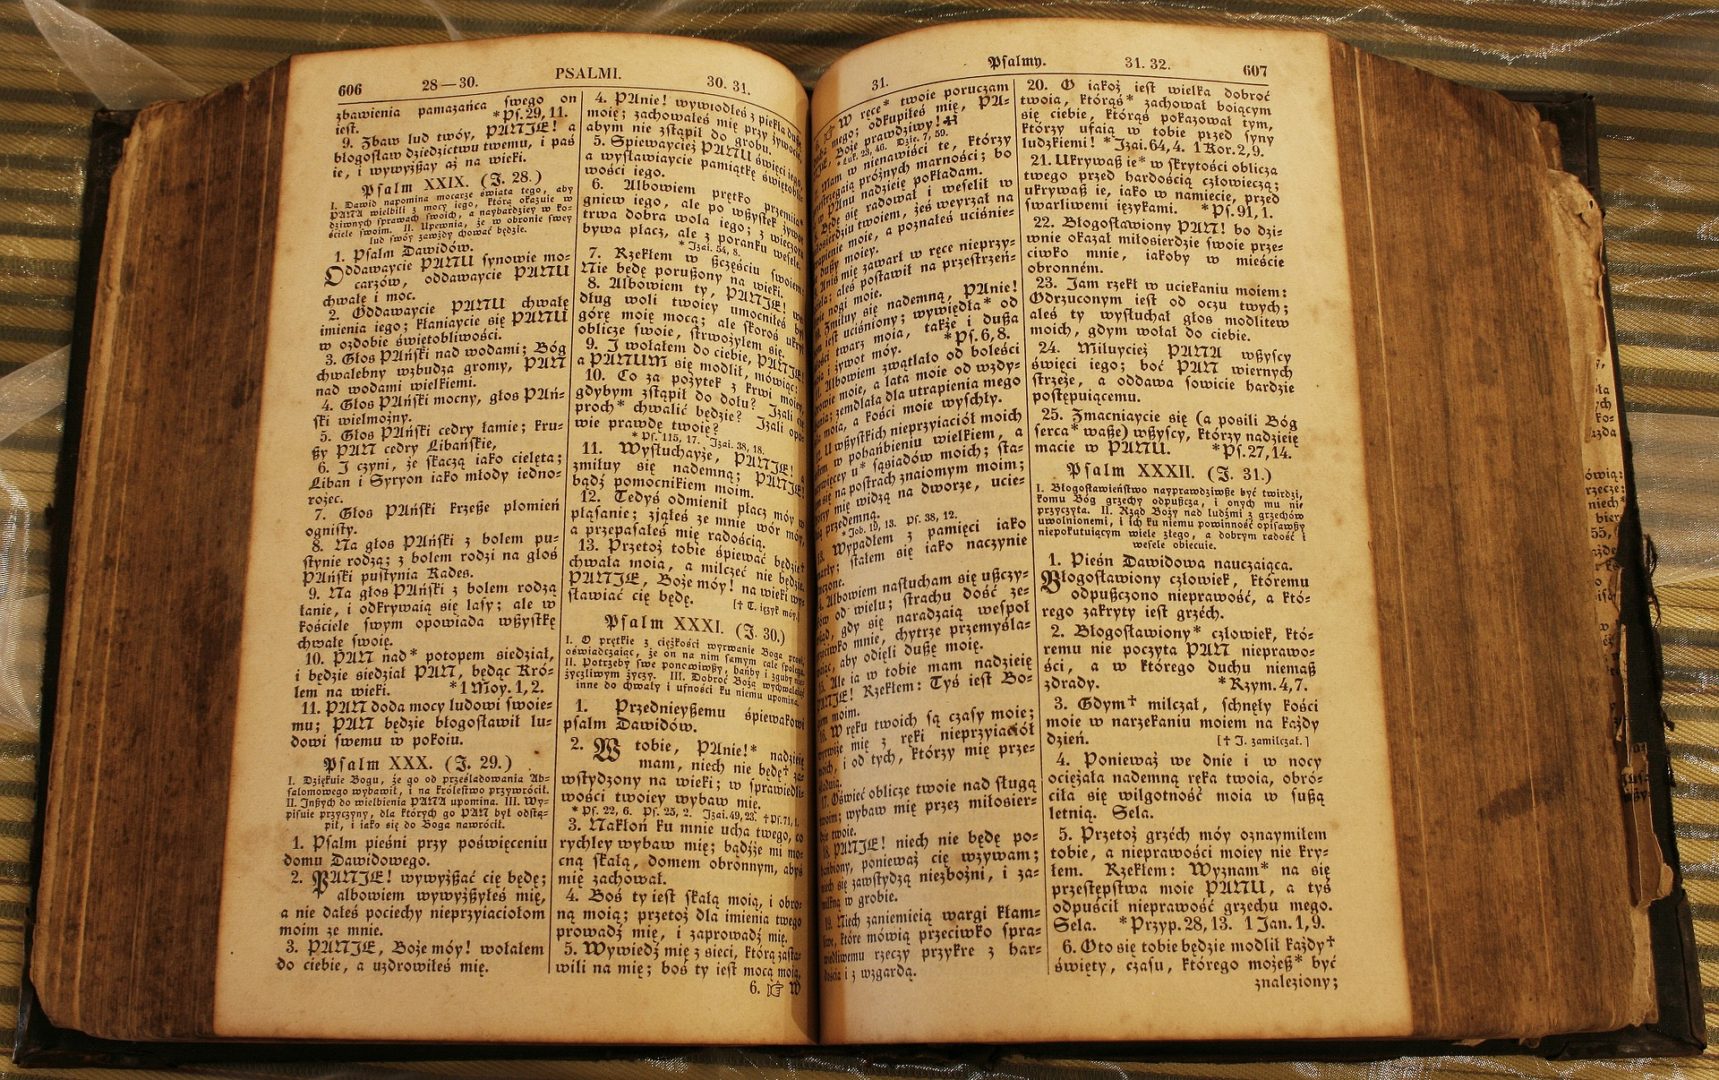 606 28—30. PSALMI. 30. 31.
zbawienia pamazańca swego on
iest. *Ps. 29, 11.
9. Zbaw lud twóy, PANJE! a
błogosław dziedzictwu twemu, i paś
ie, i wywyższay aż na wieki.
Psalm XXIX. (J. 28.)
I. Dawid napomina mocarze świata tego, aby
PANA wielbili z mocy iego, którą okazuie w
dziwnych sprawach swoich, a naybardziey w ko-
ściele swoim. II. Upewnia, że w obronie swey
lud swóy zawżdy chować będzie.
1. Psalm Dawidów.
Oddawaycie PANU synowie mo-
carzów, oddawaycie PANU
chwałę i moc.
2. Oddawaycie PANU chwałę
imienia iego; kłaniaycie się PANU
w ozdobie świętobliwości.
3. Głos PAński nad wodami; Bóg
chwalebny wzbudza gromy, PAN
nad wodami wielkiemi.
4. Głos PAński mocny, głos PAń-
ski wielmożny.
5. Głos PAński cedry łamie; kru-
szy PAN cedry Libańskie,
6. J czyni, że skaczą iako cielęta;
Liban i Syryon iako młody iedno-
rożec.
7. Głos PAński krzesze płomień
ognisty.
8. Na głos PAński z bolem pu-
stynie rodzą; z bolem rodzi na głos
PAński pustynia Kades.
9. Na głos PAński z bolem rodzą
łanie, i odkrywaią się lasy; ale w
kościele swym opowiada wszystkę
chwałę swoię.
10. PAN nad* potopem siedział,
i będzie siedział PAN, będąc Kró-
lem na wieki. *1 Moy. 1, 2.
11. PAN doda mocy ludowi swoie-
mu; PAN będzie błogosławił lu-
dowi swemu w pokoiu.
Psalm XXX. (J. 29.)
I. Dziękuie Bogu, że go od prześladowania Ab-
salomowego wybawił, i na królestwo przywrócił.
II. Inszych do wielbienia PANA upomina. III. Wy-
pisuie przyczyny, dla których go PAN był odstą-
pił, i iako się do Boga nawrócił.
1. Psalm pieśni przy poświęceniu
domu Dawidowego.
2. PANJE! wywyższać cię będę;
albowiem wywyższyłeś mię,
a nie dałeś pociechy nieprzyiaciołom
moim ze mnie.
3. PANJE, Boże móy! wołałem
do ciebie, a uzdrowiłeś mię.
4. PAnie! wywiodłeś z piekła duszę
moię; zachowałeś mię przy żywocie,
abym nie zstąpił do grobu.
5. Śpiewayciez PANU święci iego,
a wysławiaycie pamiątkę świętobli-
wości iego.
6. Albowiem prętko przemiia
gniew iego, ale po wszystek żywot
trwa dobra wola iego; z wieczora
bywa płacz, ale z poranku wesele.
* Jzai. 54, 8.
7. Rzekłem w szczęściu swoiem:
Nie będę poruszony na wieki.
8. Albowiem ty, PANJE! we-
dług woli twoiey umocniłeś był
górę moię mocą; ale skoroś ukrył
oblicze swoie, strwożyłem się.
9. J wołałem do ciebie, PANJE!
a PANUM się modlił, mówiąc:
10. Co za pożytek z krwi moiey,
gdybym zstąpił do dołu? Jzali
proch* chwalić będzie? Jzali opo-
wie prawdę twoię?
* Ps. 115, 17. Jzai. 38, 18.
11. Wysłuchayże, PANJE!
zmiłuy się nademną; PANJE!
bądź pomocnikiem moim.
12. Tedyś odmienił płacz móy w
pląsanie; zjąłeś ze mnie wór móy,
a przepasałeś mię radością.
13. Przetoż tobie śpiewać będzie†
chwała moia, a milczeć nie będzie.
PANJE, Boże móy! na wieki wy-
sławiać cię będę. [† T. ięzyk móy.]
Psalm XXXI. (J. 30.)
I. O prętkie z ciężkości wyrwanie Boga prosi,
oświadczaiąc, że on na nim samym cale spolega.
II. Potrzeby swe ponowiwszy, hańby i zguby nie-
życzliwym życzy. III. Dobroć Bożą wychwalaiąc
inne do chwały i ufności ku niemu upomina.
1. Przednieyszemu śpiewakowi
psalm Dawidów.
2. W tobie, PAnie!* nadzieię
mam, niech nie będę† za-
wstydzony na wieki; w sprawiedli-
wości twoiey wybaw mię.
* Ps. 22, 6. Ps. 25, 2. Jzai. 49, 23. †Ps. 71, 1.
3. Nakłoń ku mnie ucha twego, co
rychley wybaw mię; bądźże mi mo-
cną skałą, domem obronnym, abyś
mię zachował.
4. Boś ty iest skałą moią, i obro-
ną moią; przetoż dla imienia twego
prowadź mię, i zaprowadź mię.
5. Wywiedź mię z sieci, którą zasta-
wili na mię; boś ty iest mocą moią.
6. ☞ W
31. Psalmy. 31. 32. 607
☞ W ręce* twoie poruczam
mego; odkupiłeś mię, PA-
Boże prawdziwy!
* Łuk. 23, 46. Dzie. 7, 59.
Mam w nienawiści te, którzy
przestrzegaią próżnych marności; bo
w PAnu nadzieię pokładam.
Będę się radował i weselił w
miłosierdziu twoiem, żeś weyrzał na
utrapienie moie, a poznałeś uciśnie-
duszy moiey.
Aniś mię zawarł w ręce nieprzy-
aleś postawił na przestrzeń-
nogi moie.
Zmiłuy się nademną, PAnie!
iest uciśniony; wywiędła* od
twarz moia, także i dusza
i żywot móy. *Ps. 6, 8.
Albowiem zwątlało od boleści
zdrowie moie, a lata moie od wzdy-
zemdlała dla utrapienia mego
moia, a kości moie wyschły.
U wszystkich nieprzyiaciół moich
w pohańbieniu wielkiem, a
u* sąsiadów moich; sta-
się na postrach znaiomym moim;
mię widzą na dworze, ucie-
przedemną.
* Job. 19, 13. Ps. 38, 12.
Wypadłem z pamięci iako
stałem się iako naczynie
Albowiem nasłucham się uszczy-
od wielu; strachu dość ze-
gdy się naradzaią wespół
przeciwko mnie, chytrze przemyśla-
aby odięli duszę moię.
Ale ia w tobie mam nadzieię
PANJE! Rzekłem: Tyś iest Bo-
moim.
W ręku twoich są czasy moie;
mię z ręki nieprzyiaciół
i od tych, którzy mię prze-
Oświeć oblicze twoie nad sługą
twoim; wybaw mię przez miłosier-
twoie.
PANJE! niech nie będę po-
hańbiony, ponieważ cię wzywam;
niech się zawstydzą niezbożni, i za-
milkną w grobie.
Niech zaniemieią wargi kłam-
które mówią przeciwko spra-
wiedliwemu rzeczy przykre z har-
i z wzgardą.
20. O iakoż iest wielka dobroć
twoia, którąś* zachował boiącym
się ciebie, którąś pokazował tym,
którzy ufaią w tobie przed syny
ludzkiemi! *Jzai. 64, 4. 1 Kor. 2, 9.
21. Ukrywasz ie* w skrytości oblicza
twego przed hardością człowieczą;
ukrywasz ie, iako w namiecie, przed
swarliwemi ięzykami. *Ps. 91, 1.
22. Błogosławiony PAN! bo dzi-
wnie okazał miłosierdzie swoie prze-
ciwko mnie, iakoby w mieście
obronném.
23. Jam rzekł w uciekaniu moiem:
Odrzuconym iest od oczu twych;
aleś ty wysłuchał głos modlitew
moich, gdym wołał do ciebie.
24. Miłuycież PANA wszyscy
święci iego; boć PAN wiernych
strzeże, a oddawa sowicie hardzie
postępuiącemu.
25. Zmacniaycie się (a posili Bóg
serca* wasze) wszyscy, którzy nadzieię
macie w PANU. *Ps. 27, 14.
Psalm XXXII. (J. 31.)
I. Błogosławieństwo nayprawdziwsze być twierdzi,
komu Bóg grzechy odpuszcza, i onych mu nie
przyczyta. II. Rząd Boży nad ludźmi z grzechów
uwolnionemi, i ich ku niemu powinność opisawszy
niepokutuiącym wiele złego, a dobrym radość i
wesele obiecuie.
1. Pieśń Dawidowa nauczaiąca.
Błogosławiony człowiek, któremu
odpuszczono nieprawość, a któ-
rego zakryty iest grzéch.
2. Błogosławiony* człowiek, któ-
remu nie poczyta PAN nieprawo-
ści, a w którego duchu niemasz
zdrady. *Rzym. 4, 7.
3. Gdym† milczał, schnęły kości
moie w narzekaniu moiem na każdy
dzień. [† J. zamilczał.]
4. Ponieważ we dnie i w nocy
ociężała nademną ręka twoia, obró-
ciła się wilgotność moia w suszą
letnią. Sela.
5. Przetoż grzéch móy oznaymiłem
tobie, a nieprawości moiey nie kry-
łem. Rzekłem: Wyznam* na się
przestępstwa moie PANU, a tyś
odpuścił nieprawość grzechu mego.
Sela. *Przyp. 28, 13. 1 Jan. 1, 9.
6. Oto się tobie będzie modlił każdy†
święty, czasu, którego możesz* być
znaleziony;